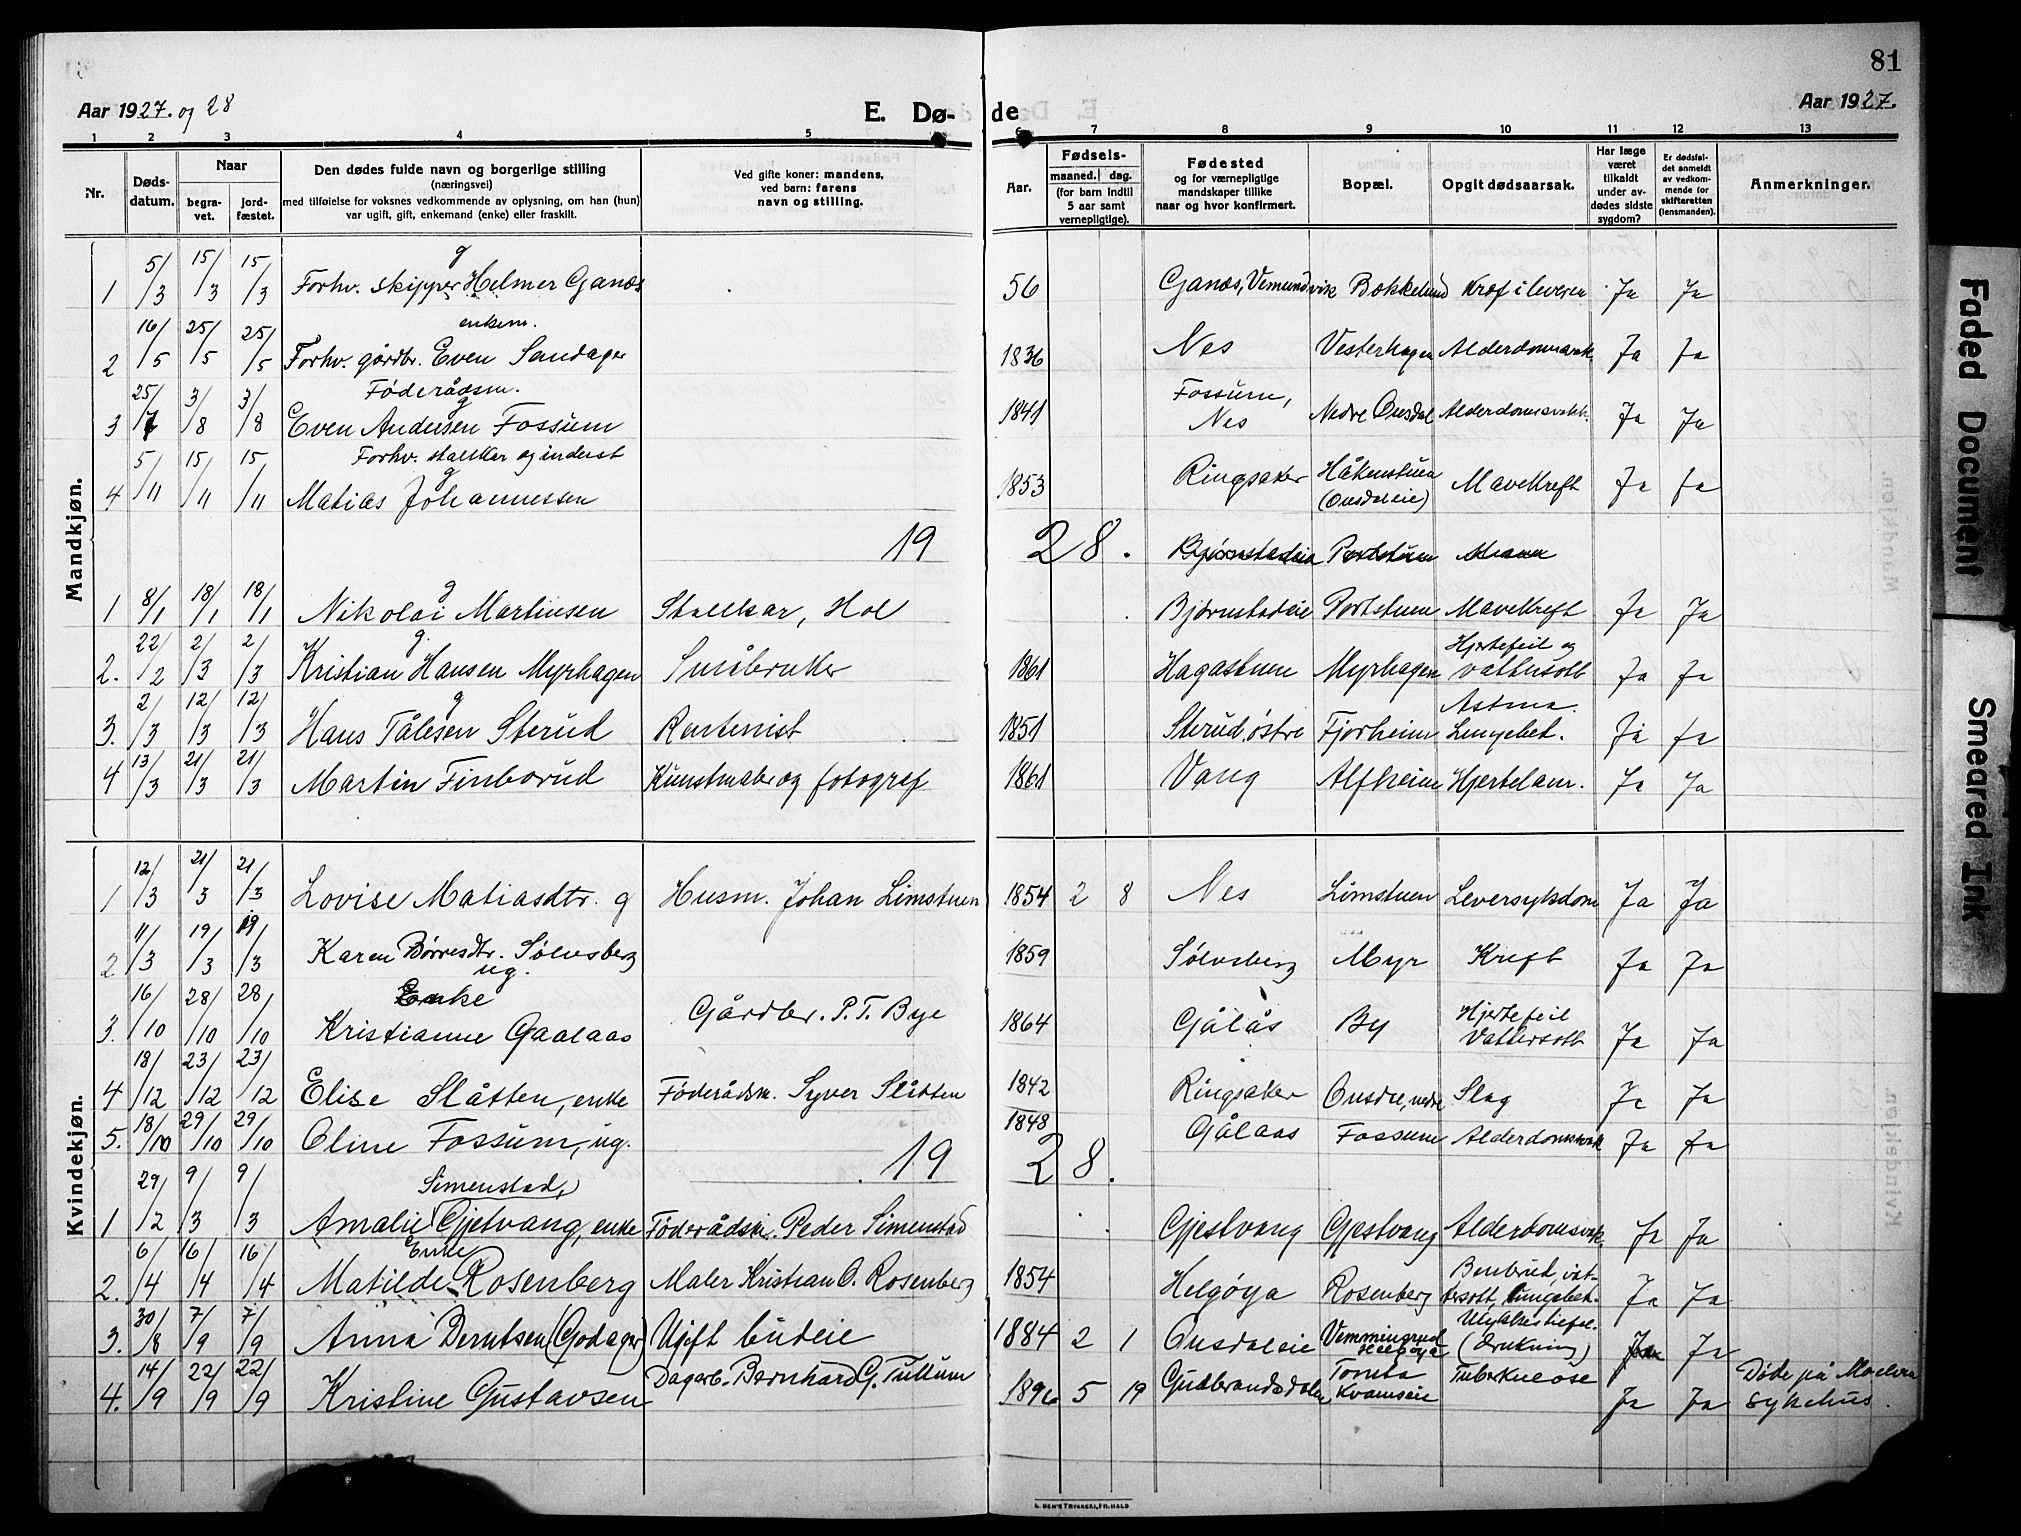 81
Aar 1927. og 28
E. Dø-
de
Aar 1927.
1 2 3 4 5 6 7 8 9 10 11 12 13
Nr.
Døds-datum.
Naar
begra-vet.
jord-fæstet.
Den dødes fulde navn og borgerlige stilling
(næringsvei)
med tilføielse for voksnes vedkommende av oplysning, om han (hun)
var ugift, gift, enkemand (enke) eller fraskilt.
Ved gifte koner: mandens,
ved barn: farens
navn og stilling.
Aar.
Fødsels-
maaned. dag.
(for barn indtil
5 aar samt
vernepligtige).
Fødested
og for værnepligtige
mandskaper tillike
naar og hvor konfirmert.
Bopæl.
Opgit dødsaarsak.
Har læge
været
tilkaldt
under av-
dødes sidste
sygdom?
Er dødsfal-
det anmeldt
av vedkom-
mende for
skifteretten
(lensmanden).
Anmerkninger.
Mandkjøn.
g
1 5/3 15/3 15/3 Forhv. skipper Helmer Ganæs 56 Ganæs, Vemundvik Bakkelund Kræft i leveren Ja Ja
enkem.
2 16/5 25/5 25/5 Forhv. gårdbr. Even Sandager 1836 Nes Vesterhagen Alderdomsvak. Ja Ja
Føderådsm.
g
3 25/7 3/8 3/8 Even Andersen Fossum 1841 Fossum, Nes Nedre Onsdal Alderdomsvakh. Ja Ja
Forhv. stallkar og inderst
g
4 5/11 15/11 15/11 Matias Johannessen 1853 Ringsaker Håkenstuen (Onsdaleie) Mavekreft Ja Ja
19 28. Bjørnstadeie Portstuen
g
1 8/1 18/1 18/1 Nikolai Martinsen Stallkar, Hol Bjørnstadeie Portstuen Mavekreft Ja Ja
g.
2. 22/2 2/3 2/3 Kristian Hansen Myrhagen Småbruker 1861 Hagastuen Myrhagen Hjertefeil og vattersott Ja Ja
g
3. 2/3 12/3 12/3 Hans Tålesen Sterud Rentenist 1851 Sterud, østre Fjorheim Astma. Lungebet. Ja Ja
4 13/3 21/3 21/3 Martin Finborud Kunstmaler og fotograf 1861 Vang Alfheim Hjertelam. Ja Ja
Kvindekjøn.
1 12/3 21/3 21/3 Lovise Matiasdtr. g Husm. Johan Limstuen 1854 2 8 Nes Limstuen Leversykdom Ja Ja
2 11/3 19/3 19/3 Karen Børresdtr. Sølvsberg ug. 1859 Sølvsberg Myr Kreft Ja Ja
Enke
3. 16/10 28/10 28/10 Kristianne Gaalaas Gårdbr. P. T. Bye 1864 Gålås By Hjertefeil Vattersott Ja Ja
4 18/12 23/12 23/12 Elise Slåtten, enke Føderådsm. Syver Slåtten 1842 Ringsaker Onsdl, nedre Slag Ja Ja
5. 18/10 29/10 29/10 Oline Fossum, ug. 1848 Gålaas Fossum Alderdomsvak Ja Ja
19 28.
Simenstad,
1 29/2 9/3 9/3 Amalie Gjetvang, enke Føderådsm. Peder Simenstad Gjestvang Gjestvang Alderdomsvak. Ja Ja
Enke
2. 6/4 16/4 16/4 Matilde Rosenberg Maler Kristian O. Rosenberg 1854 Helgøya Rosenberg Benbrud, vat-tersott, lungebet. Ja Ja
3. 30/8 7/9 7/9 Anna Berntsen (Godager) Ugift budeie 1884 2 1 Onsdaleie Vemmingrud Helgøya Ulykkestilfel. (Drukning) Ja Ja
4. 14/9 22/9 22/9 Kristine Gustavsen Dagarb. Bernhard G. Tullum 1896 5 19 Gudbrandsdalen Tomta Kvamseie Tuberkulose Ja Ja Døde på Moelven sykehus.
Faded Document
Smeared Ink